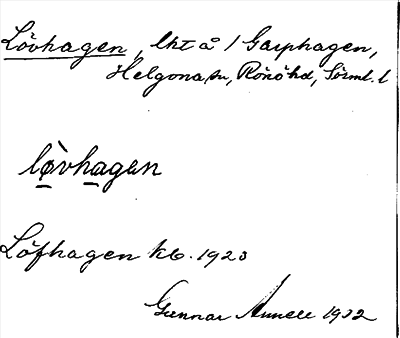 Lövhagen, lht å / Garphagen,
Helgona sn, Rönö hd, Sörml. l
lø̀vhagen
Löfhagen kb. 1923
Gunnar Annell 1932